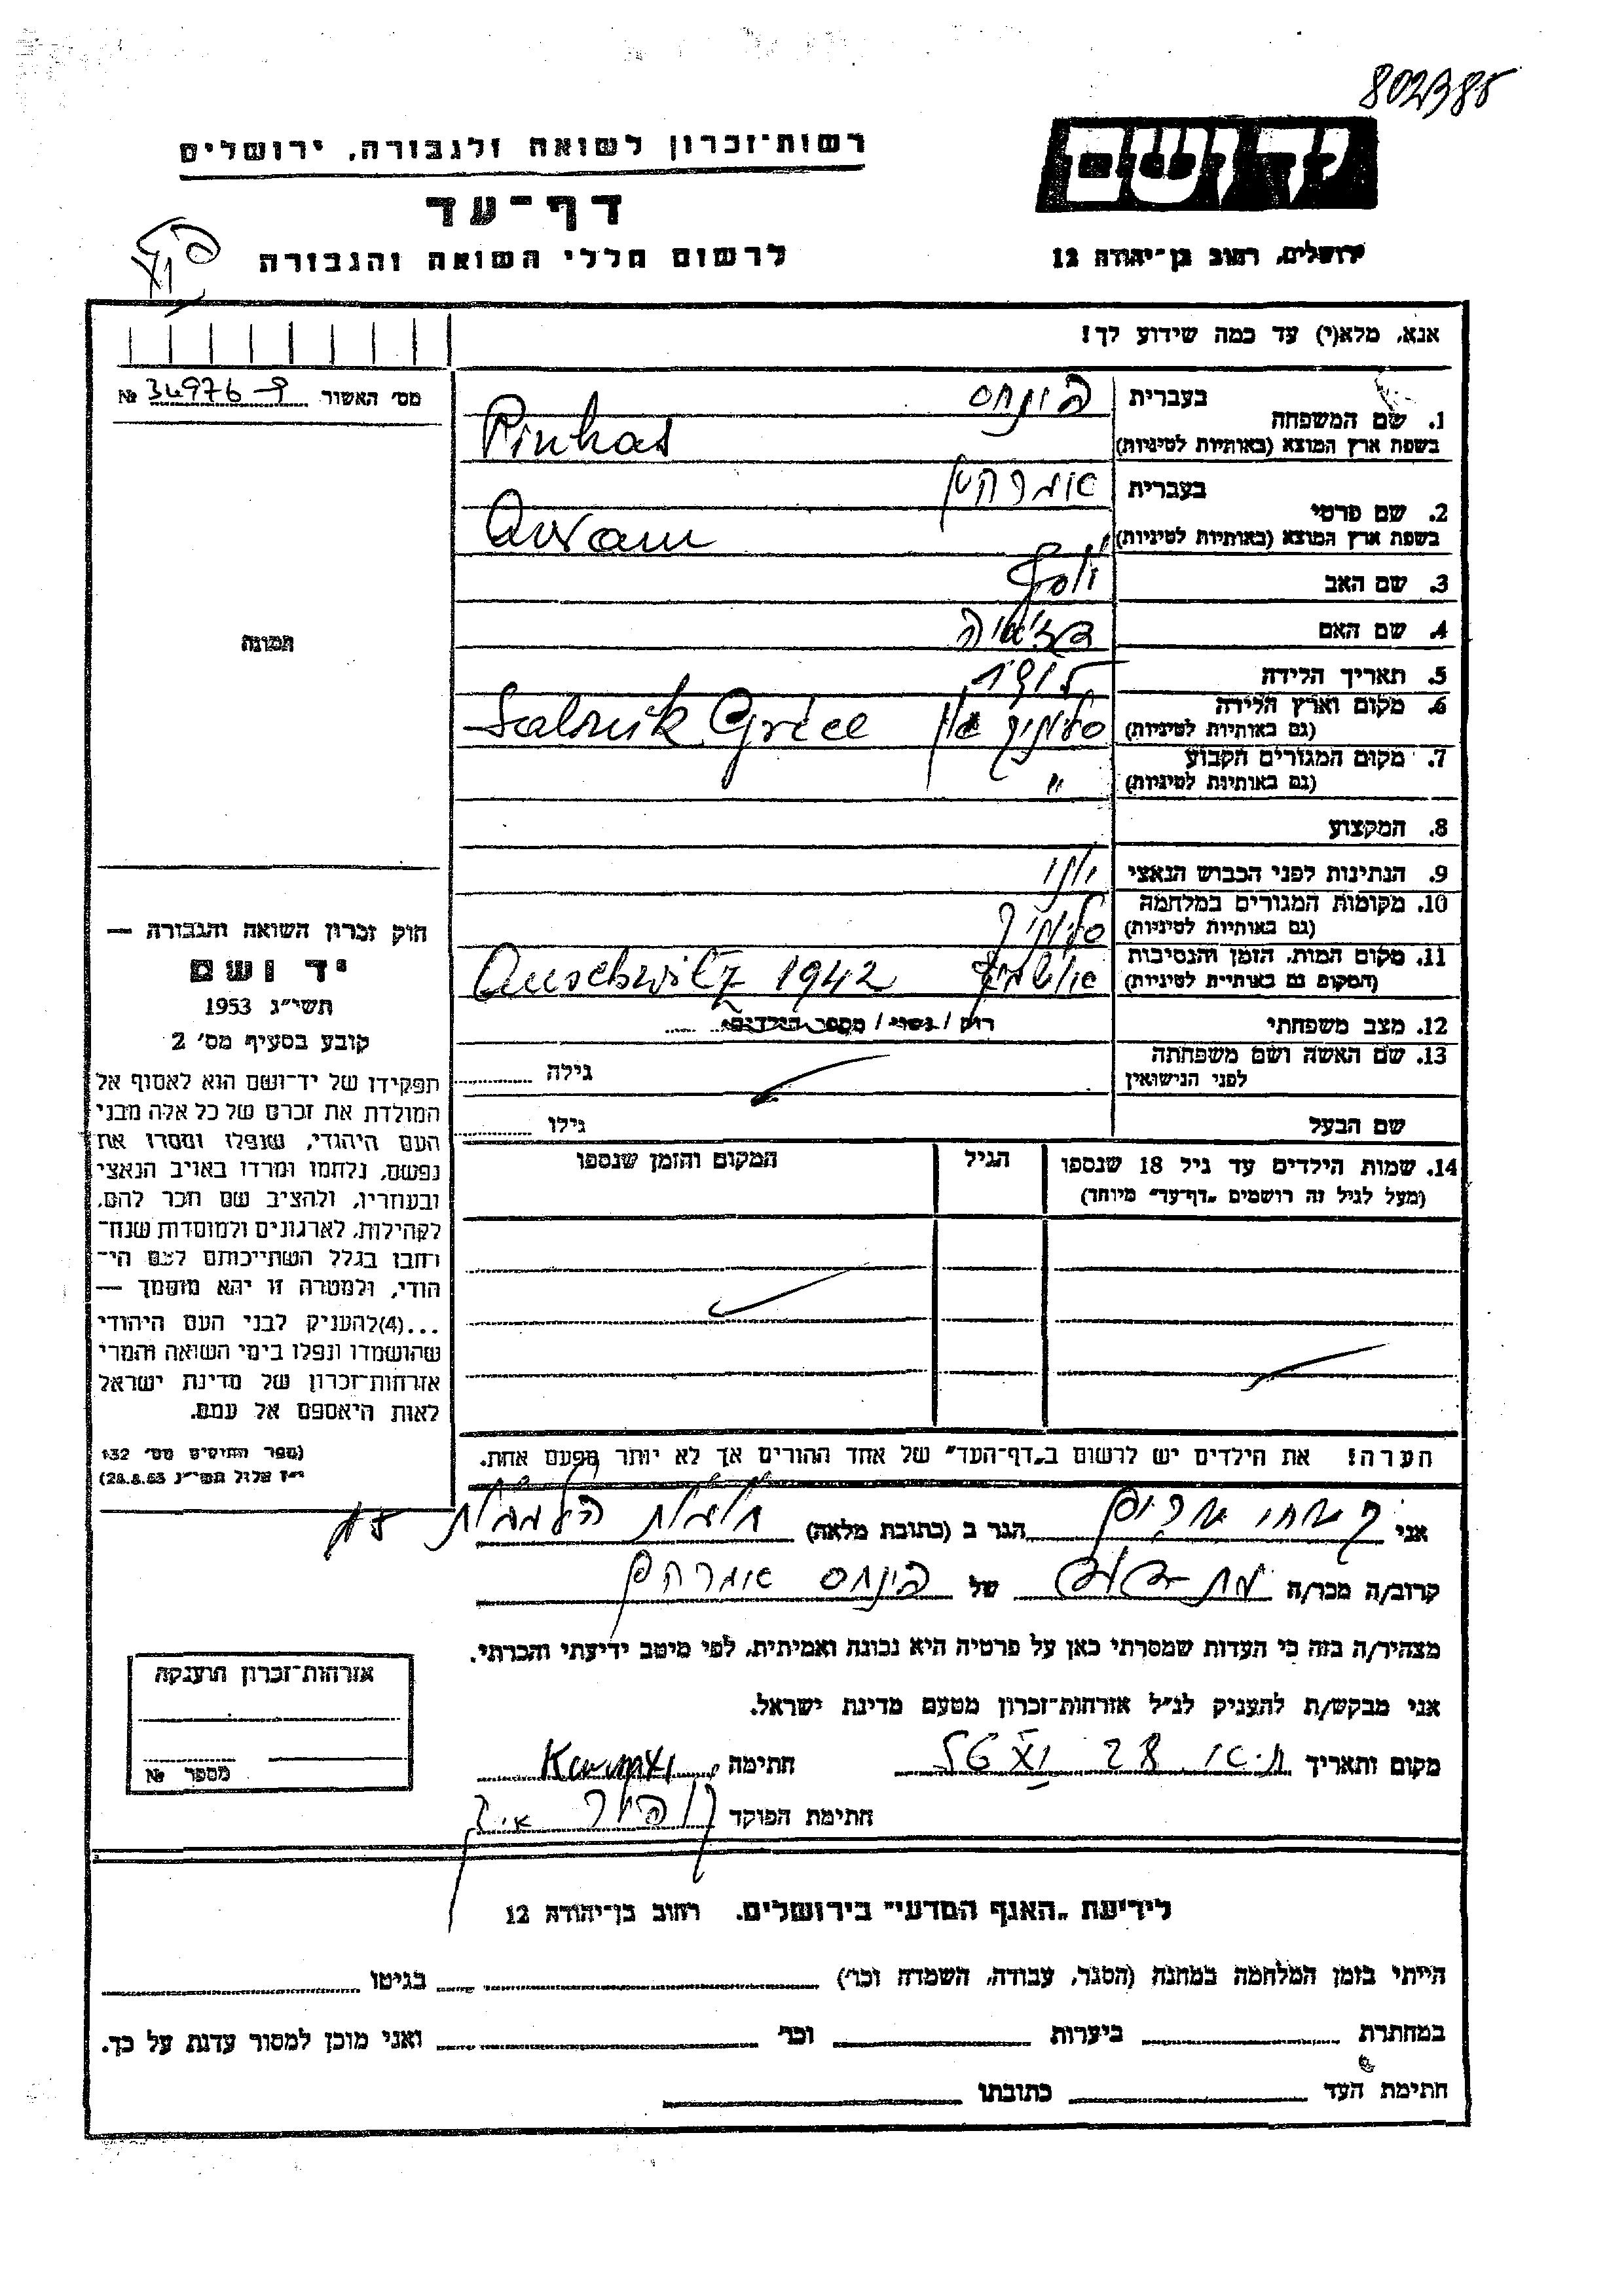 802385
יד ושם
רשות־זכרון לשואה ולגבורה, ירושלים
דף־עד
לרשום חללי השואה והגבורה
ירושלים, רחוב בן־יהודה 12
אנא, מלא(י) עד כמה שידוע לך!
מס׳ האשור 34976-9 №
1. שם המשפחה
בעברית פינחס
בשפת ארץ המוצא (באותיות לטיניות) Pinhas
2. שם פרטי
בעברית אברהם
בשפת ארץ המוצא (באותיות לטיניות) Avram
3. שם האב יוסף
4. שם האם
5. תאריך הלידה
6. מקום וארץ הלידה
(גם באותיות לטיניות) סלוניק יון Salonik Grèce
7. מקום המגורים הקבוע
(גם באותיות לטיניות) "
8. המקצוע
9. הנתינות לפני הכבוש הנאצי יונו
10. מקומות המגורים במלחמה
(גם באותיות לטיניות) סלוניק
11. מקום המות, הזמן והנסיבות
(המקום גם באותיות לטיניות) אושויץ Auschwitz 1942
12. מצב משפחתי רוק / נשוי / מספר הילדים
13. שם האשה ושם משפחתה
לפני הנישואין גילה
שם הבעל גילו
14. שמות הילדים עד גיל 18 שנספו
(מעל לגיל זה רושמים „דף־עד״ מיוחד)
הגיל
המקום והזמן שנספו
הערה! את הילדים יש לרשום ב„דף־העד״ של אחד ההורים אך לא יותר מפעם אחת.
תמונה
חוק זכרון השואה והגבורה —
יד ושם
תשי״ג 1953
קובע בסעיף מס׳ 2
תפקידו של יד־ושם הוא לאסוף אל
המולדת את זכרם של כל אלה מבני
העם היהודי, שנפלו ומסרו את
נפשם, נלחמו ומרדו באויב הנאצי
ובעוזריו, ולהציב שם וזכר להם,
לקהילות, לארגונים ולמוסדות שנח־
רבו בגלל השתייכותם לעם הי־
הודי, ולמטרה זו יהא מוסמך —
...(4)להעניק לבני העם היהודי
שהושמדו ונפלו בימי השואה והמרי
אזרחות־זכרון של מדינת ישראל
לאות היאספם אל עמם.
(ספר החוקים מס׳ 132
י״ז אלול תשי״ג 28.8.53)
אני
הגר ב (כתובת מלאה)
קרוב/ה מכר/ה של פינחס אברהם
מצהיר/ה בזה כי העדות שמסרתי כאן על פרטיה היא נכונה ואמיתית, לפי מיטב ידיעתי והכרתי.
אני מבקש/ת להעניק לנ״ל אזרחות־זכרון מטעם מדינת ישראל.
מקום ותאריך
חתימה
חתימת הפוקד
אזרחות־זכרון הוענקה
מספר №
לידיעת „האגף המדעי״ בירושלים. רחוב בן־יהודה 12
הייתי בזמן המלחמה במחנה (הסגר, עבודה, השמדה וכו׳) בגיטו
במחתרת ביערות וכו׳ ואני מוכן למסור עדות על כך.
חתימת העד כתובתו